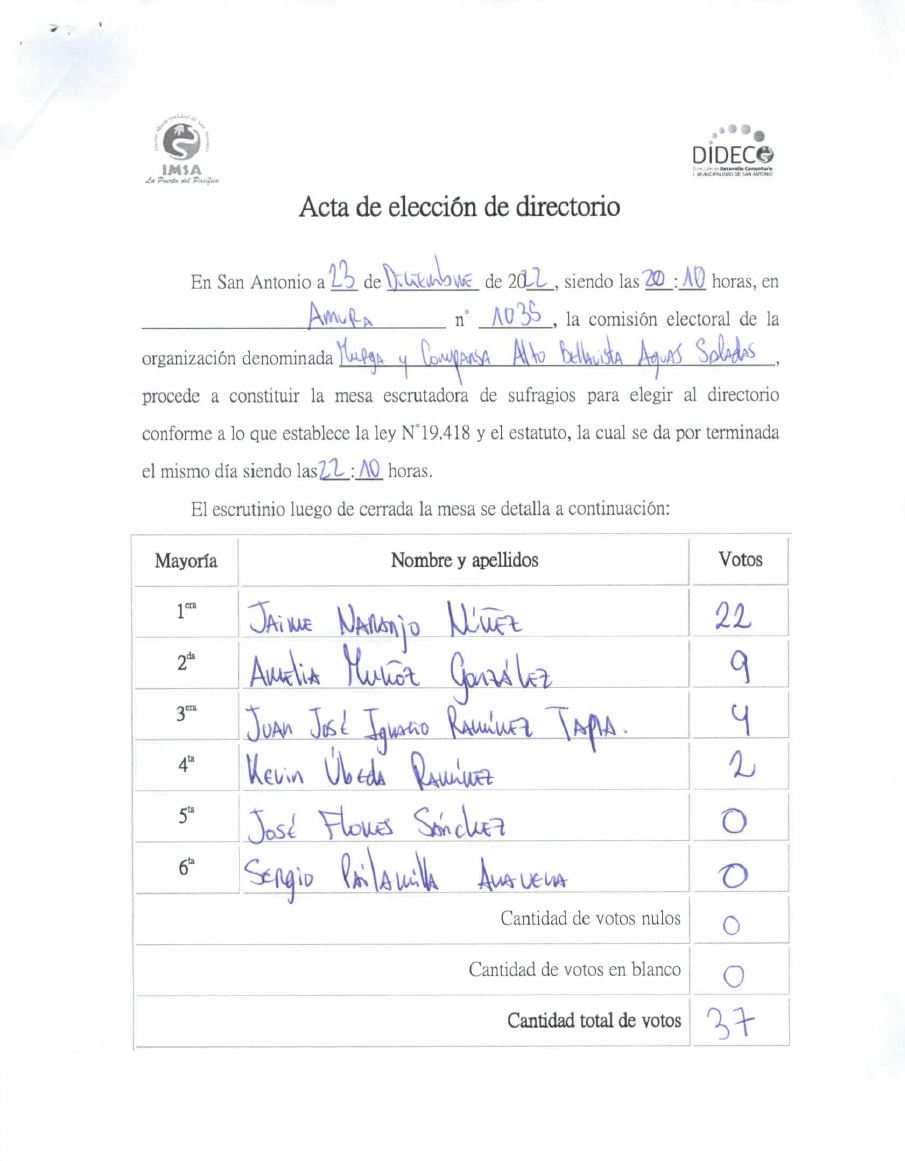 IMSA
La Puerta del Pacífico
DIDECO
Dirección de Desarrollo Comunitario
I. MUNICIPALIDAD DE SAN ANTONIO
Acta de elección de directorio
En San Antonio a 23 de Diciembre de 2022, siendo las 20:10 horas, en
Amura n° 1035, la comisión electoral de la
organización denominada Murga y Comparsa Alto Bellavista Aguas Saladas,
procede a constituir la mesa escrutadora de sufragios para elegir al directorio
conforme a lo que establece la ley N°19.418 y el estatuto, la cual se da por terminada
el mismo día siendo las 22:10 horas.
El escrutinio luego de cerrada la mesa se detalla a continuación:
Mayoría Nombre y apellidos Votos
1era Jaime Naranjo Núñez 22
2da Amelia Muñoz González 9
3era Juan José Ignacio Ramírez Tapia. 4
4ta Kevin Úbeda Ramírez 2
5ta José Flores Sánchez 0
6ta Sergio Pailamilla Aravena 0
Cantidad de votos nulos 0
Cantidad de votos en blanco 0
Cantidad total de votos 37